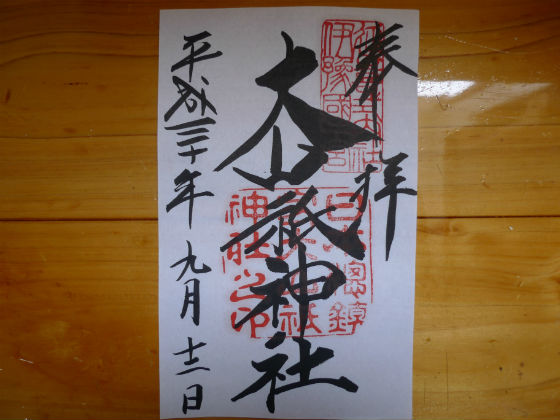 奉拝
伊豫國一宮
大山祇神社
日本總鎮
守大山祇
神社之印
平成三十年九月十二日